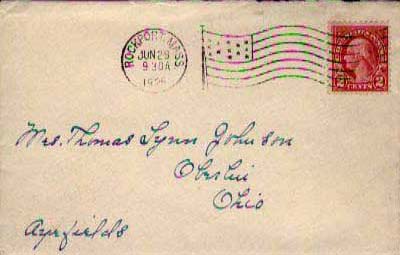 ROCKPORT, MASS
JUN 29
9 30A
2
CENTS
Mrs. Thomas Lynn Johnson
Oberlin
Ohio
Ayrfields